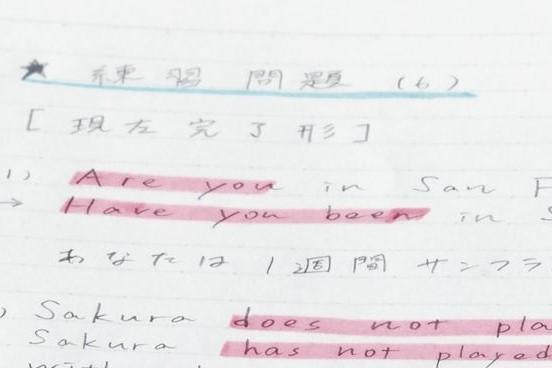 ★ 練習問題 (6)
[現在完了形]
1) Are you in San F
→ Have you been in S
あなたは1週間サンフラ
) Sakura does not pla
Sakura has not played
with